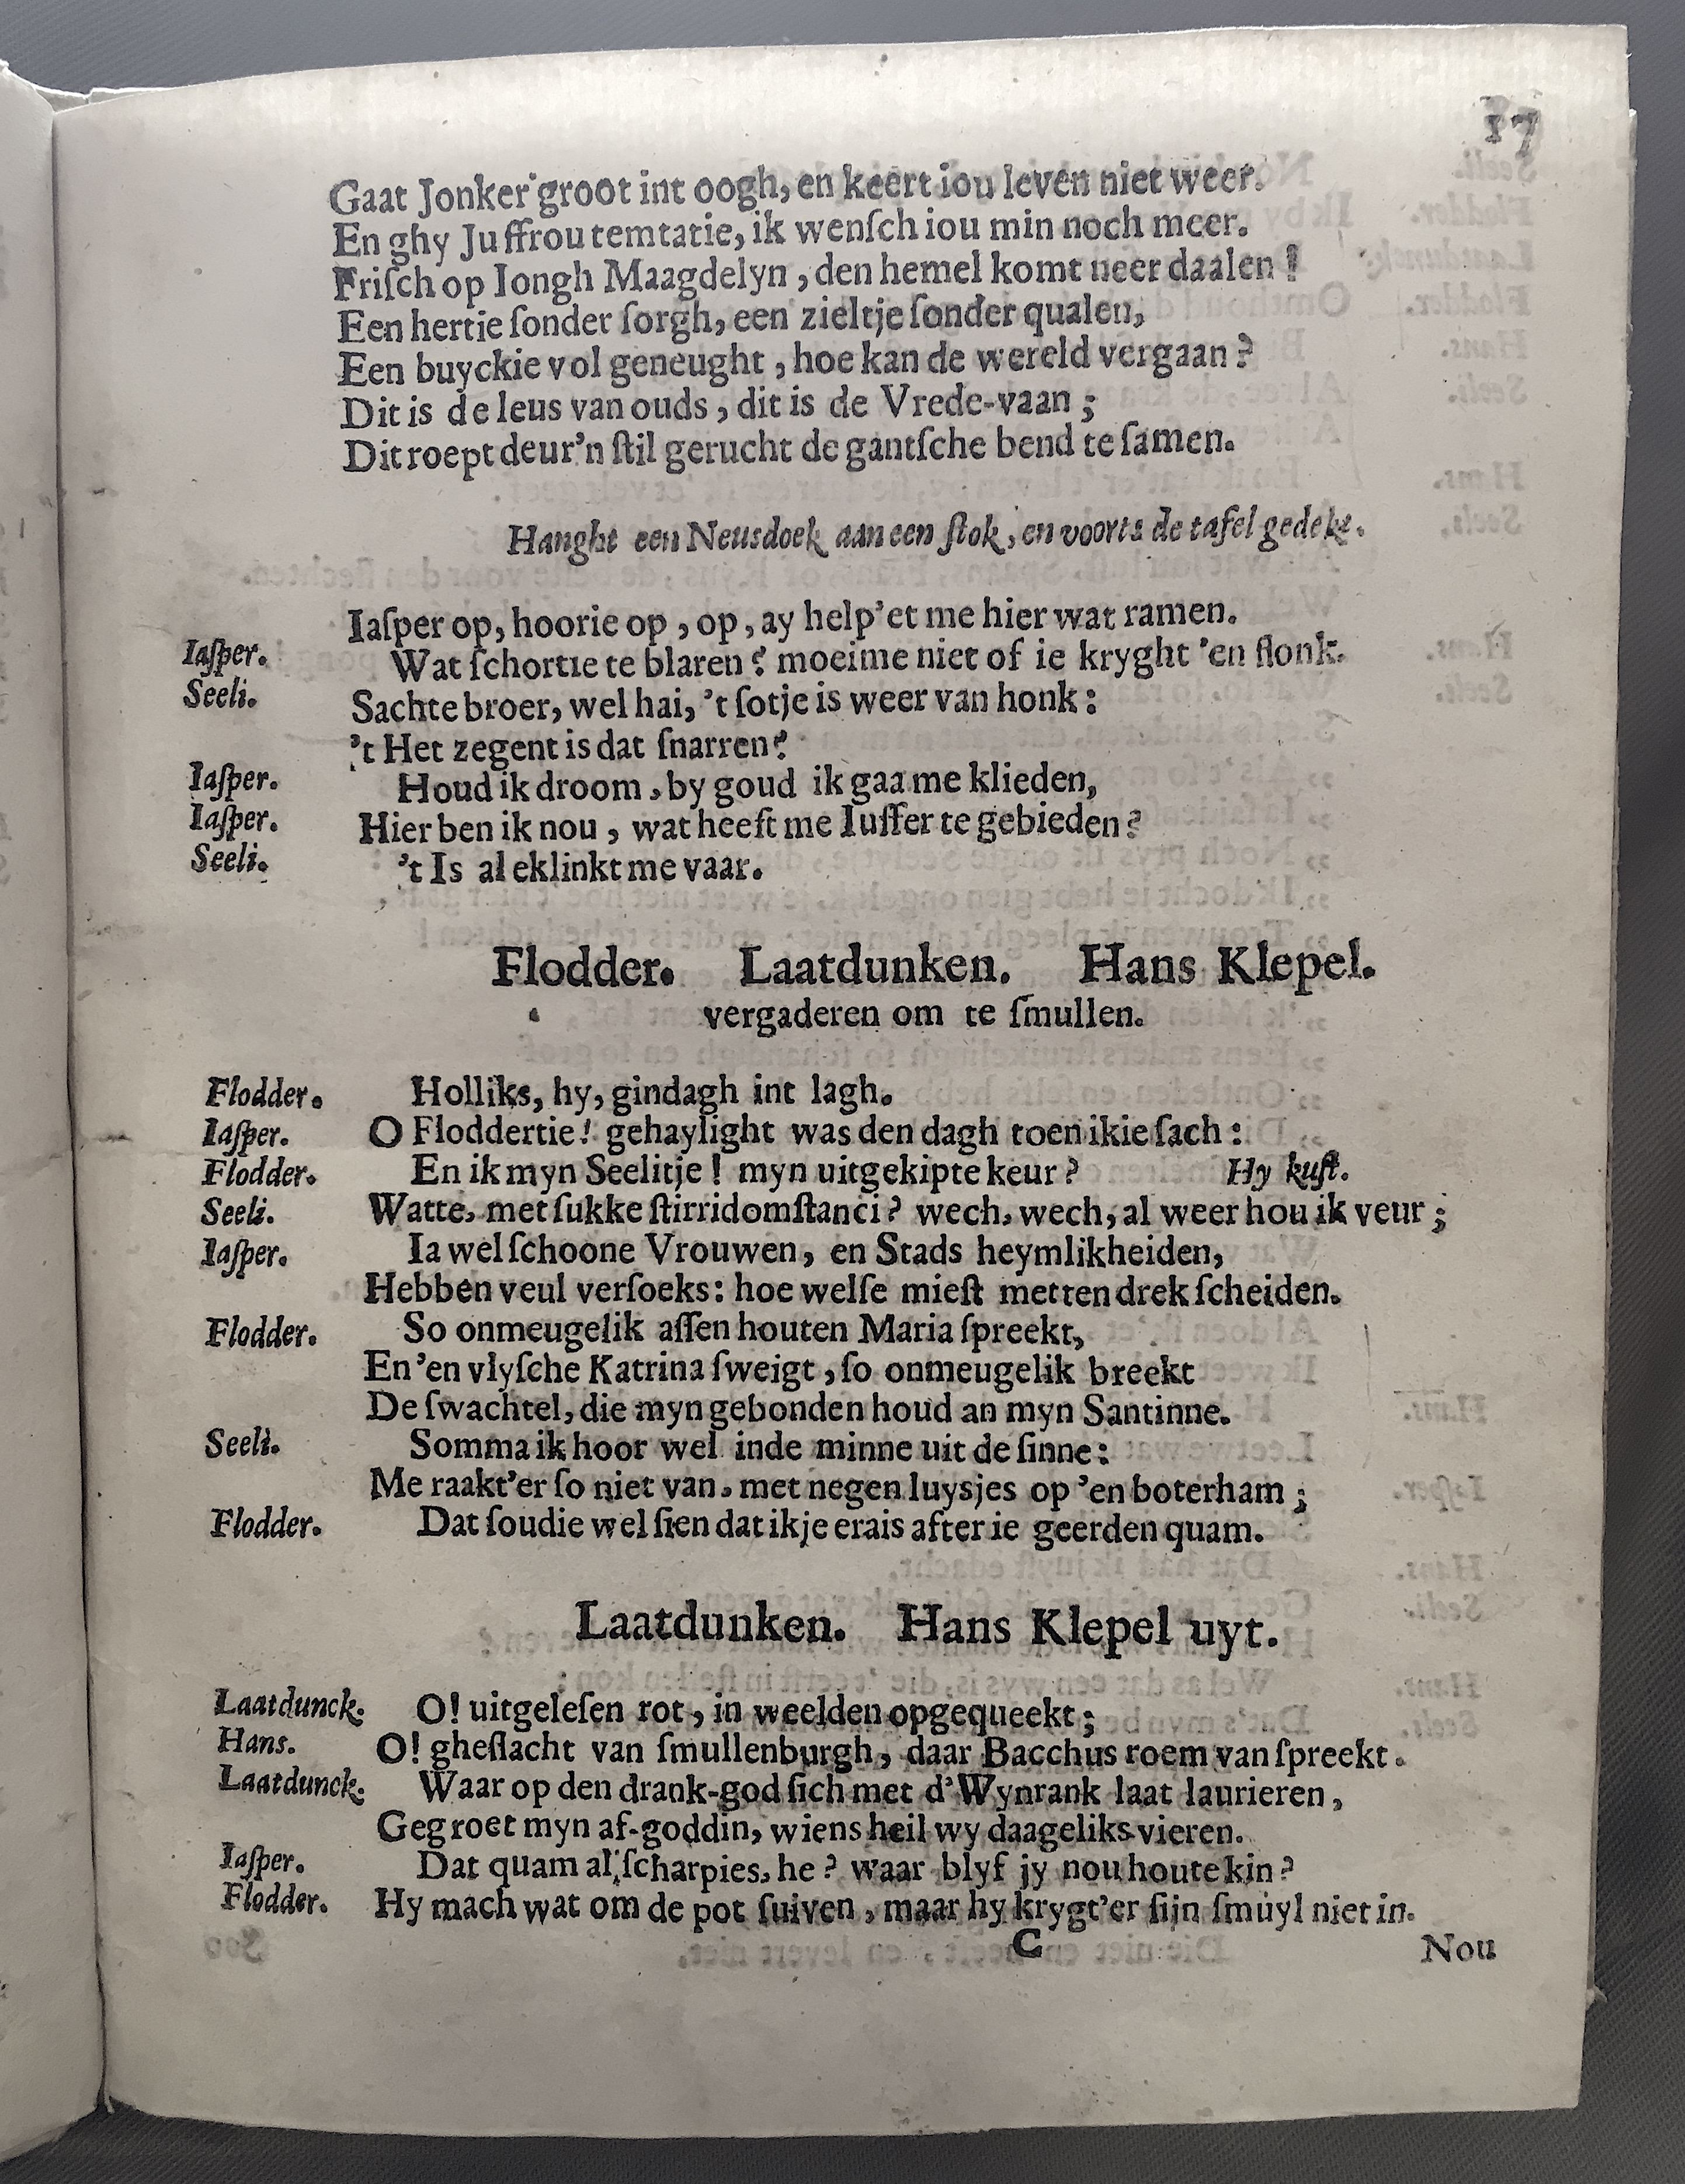 17
Gaat Jonker groot int oogh, en keert iou leven niet weer.
En ghy Juffrou temtatie, ik wenſch iou min noch meer.
Friſch op Iongh Maagdelyn, den hemel komt neer daalen!
Een hertie ſonder ſorgh, een zieltje ſonder qualen,
Een buyckie vol geneught, hoe kan de wereld vergaan?
Dit is de leus van ouds, dit is de Vrede-vaan;
Dit roept deur'n ſtil gerucht de gantſche bend te ſamen.
Hanght een Neusdoek aan een ſtok, en voorts de tafel gedekt.
Iaſper op, hoorie op, op, ay help'et me hier wat ramen.
Iaſper. Wat ſchortie te blaren? moeime niet of ie kryght 'en ſlonk.
Seeli. Sachte broer, wel hai, 't ſotje is weer van honk:
't Het zegent is dat ſnarren?
Iaſper. Houd ik droom, by goud ik gaa me klieden,
Iaſper. Hier ben ik nou, wat heeft me Iuffer te gebieden?
Seeli. 't Is al eklinkt me vaar.
Flodder. Laatdunken. Hans Klepel.
vergaderen om te ſmullen.
Flodder. Holliks, hy, gindagh int lagh.
Iaſper. O Floddertie! gehaylight was den dagh toen ikie ſach:
Flodder. En ik myn Seelitje! myn uitgekipte keur? Hy kuſt.
Seeli. Watte, met ſukke ſtirridomſtanci? wech, wech, al weer hou ik veur;
Iaſper. Ia wel ſchoone Vrouwen, en Stads heymlikheiden,
Hebben veul verſoeks: hoe welſe mieſt metten drek ſcheiden.
Flodder. So onmeugelik aſſen houten Maria ſpreekt,
En 'en vlyſche Katrina ſweigt, ſo onmeugelik breekt
De ſwachtel, die myn gebonden houd an myn Santinne.
Seeli. Somma ik hoor wel inde minne uit de ſinne:
Me raakt'er ſo niet van, met negen luysjes op 'en boterham;
Flodder. Dat ſoudie wel ſien dat ik je erais after ie geerden quam.
Laatdunken. Hans Klepel uyt.
Laatdunck. O! uitgeleſen rot, in weelden opgequeekt;
Hans. O! gheſlacht van ſmullenburgh, daar Bacchus roem van ſpreekt.
Laatdunck. Waar op den drank-god ſich met d'Wynrank laat laurieren,
Gegroet myn af-goddin, wiens heil wy daageliks vieren.
Iaſper. Dat quam al ſcharpies, he? waar blyf jy nou houte kin?
Flodder. Hy mach wat om de pot ſuiven, maar hy krygt'er ſijn ſmuyl niet in.
C Nou